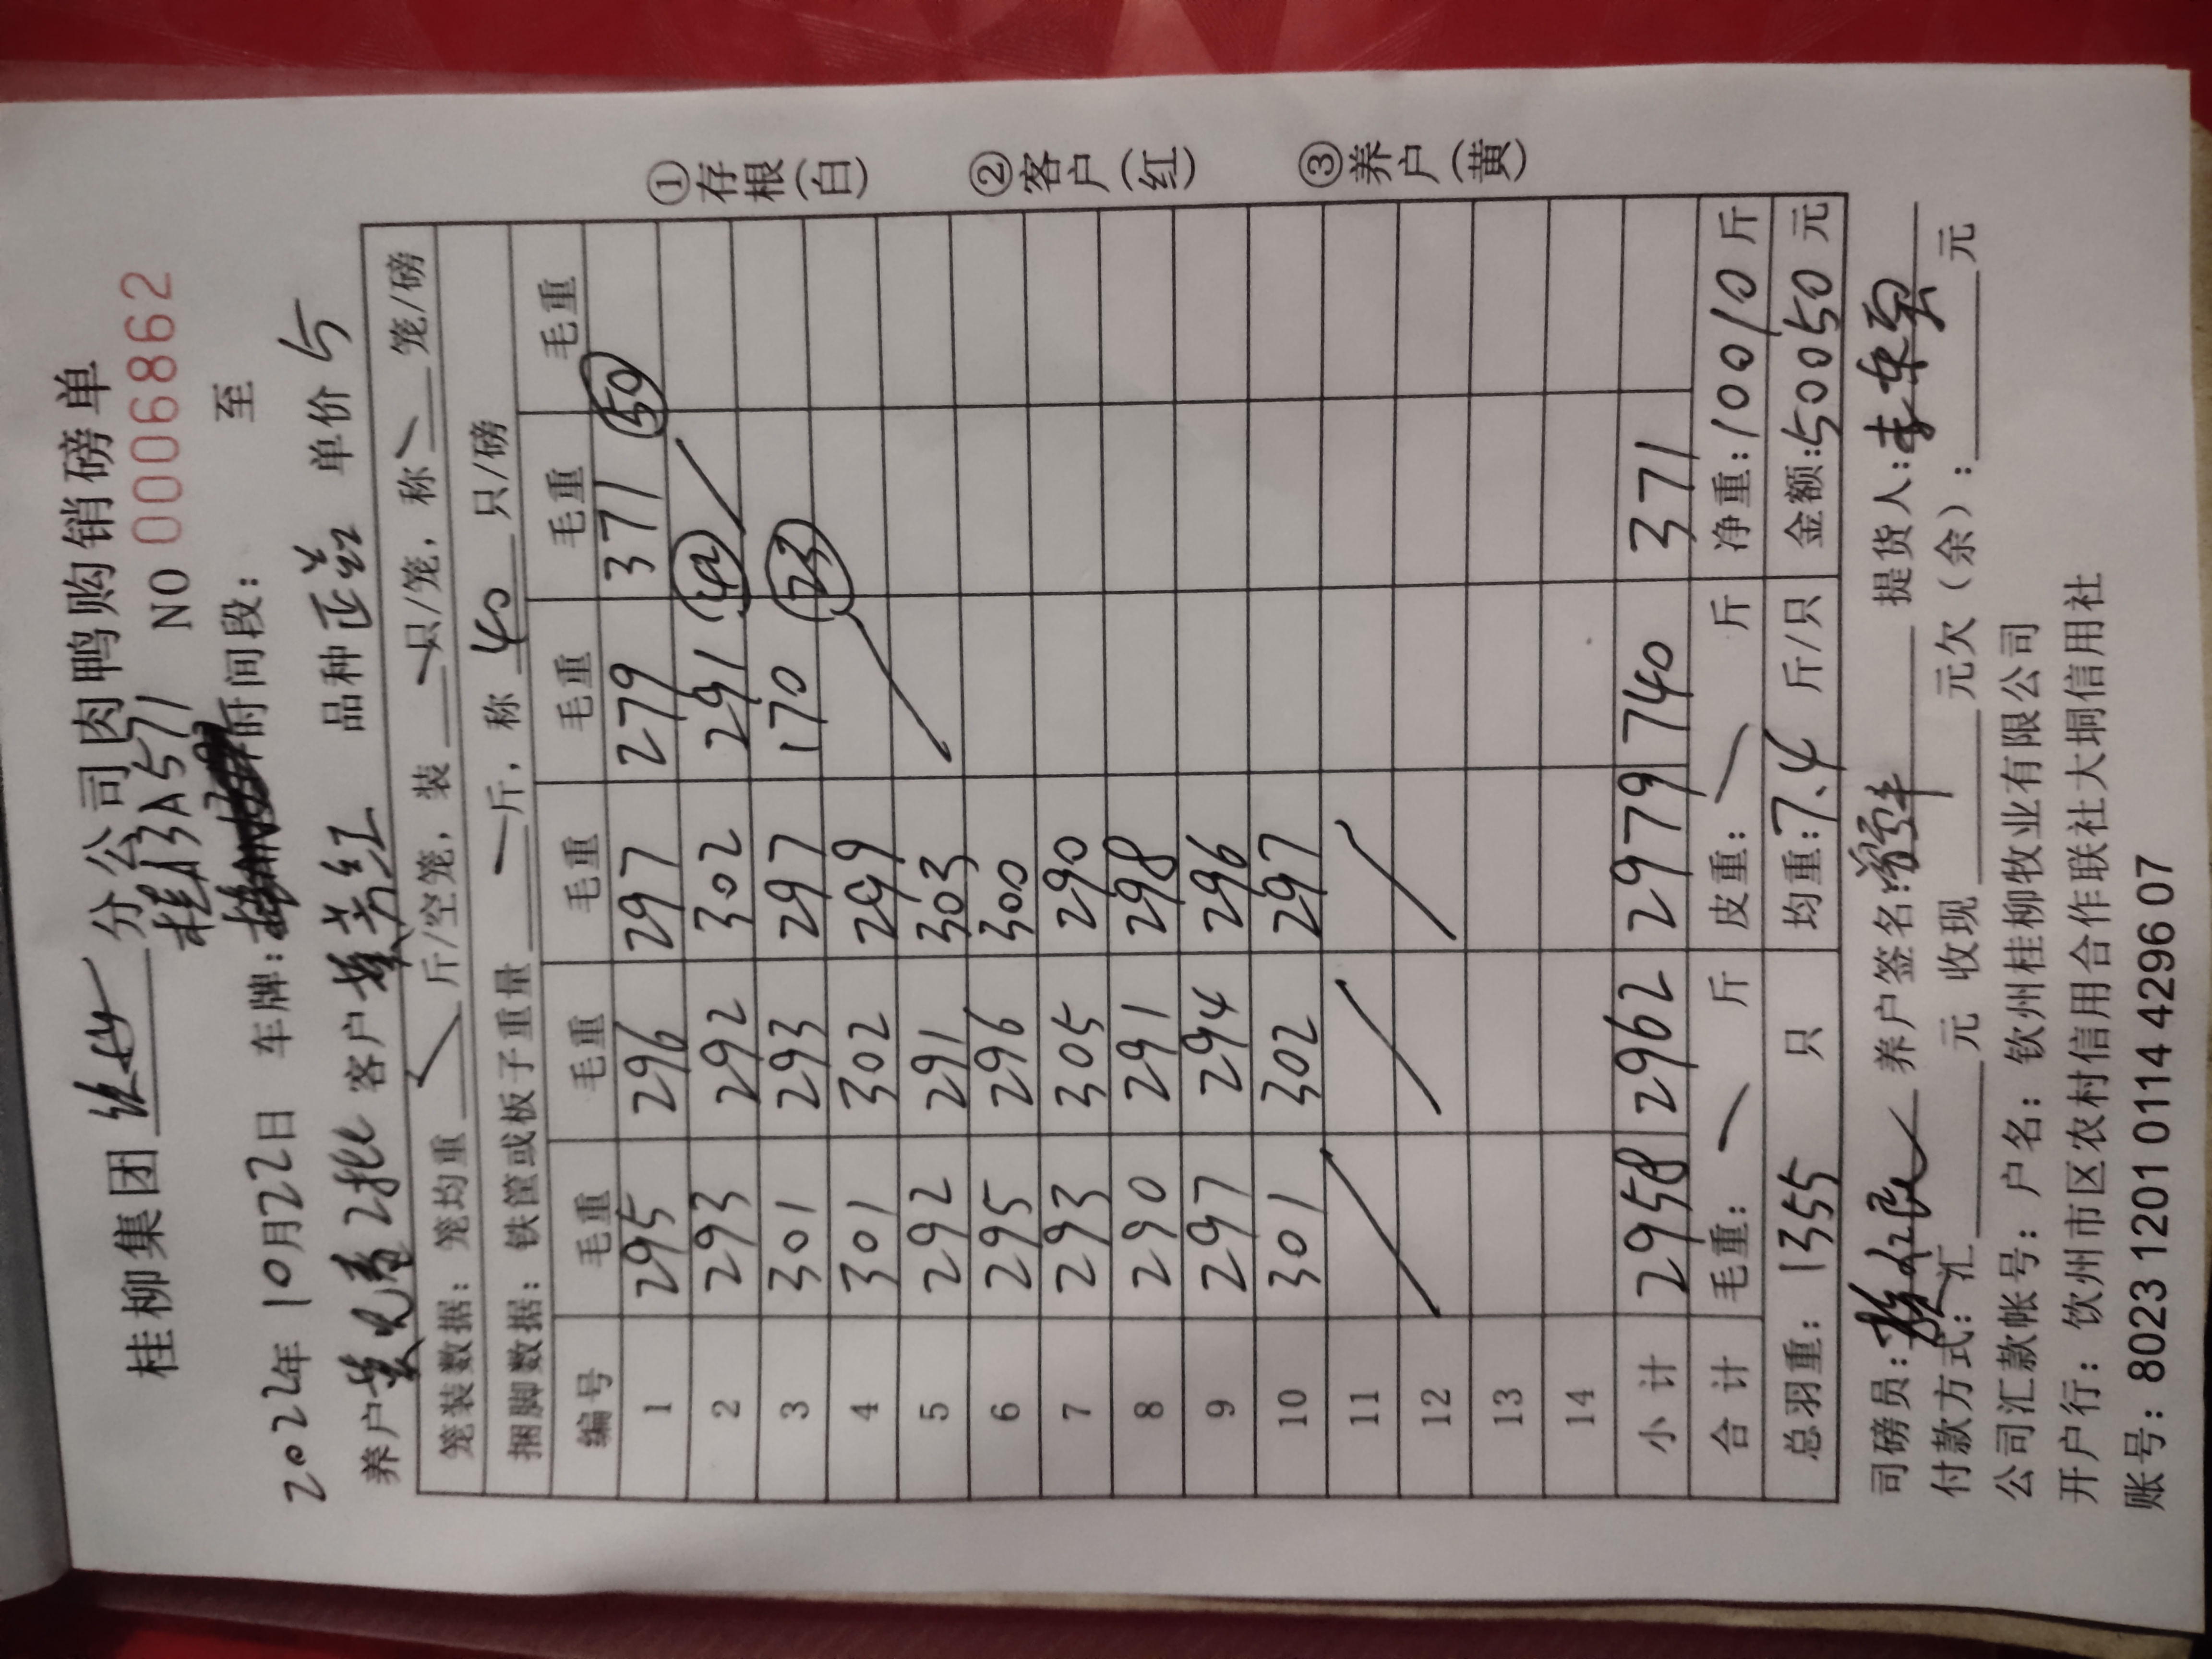 桂柳集团 分公司肉鸭购销磅单
桂A3A571 NO 0006862
2022年10月22日 车牌: 时间段: 至
养户黄光春2批 客户黄芳红 品种正芸 单价 5
笼装数据: 笼均重 斤/空笼, 装 只/笼, 称 笼/磅
捆脚数据: 铁筐或板子重量 斤, 称 40 只/磅
编号 毛重 毛重 毛重 毛重 毛重 毛重
1 295 296 297 279 371 50
2 293 292 302 291 42
3 301 293 297 170 23
4 301 302 299
5 292 291 303
6 295 296 300
7 293 305 290
8 290 291 298
9 297 294 296
10 301 302 297
11
12
13
14
小计 2958 2962 2979 740 371
合计 毛重: 斤 皮重: 斤 净重: 10010 斤
总羽重: 1355 只 均重: 7.4 斤/只 金额: 50050 元
司磅员: 养户签名: 提货人:
付款方式: 汇 元 收现 元欠(余): 元
公司汇款帐号: 户名: 钦州桂柳牧业有限公司
开户行: 钦州市区农村信用合作联社大垌信用社
账号: 8023 1201 0114 4296 07
①存根(白)
②客户(红)
③养户(黄)